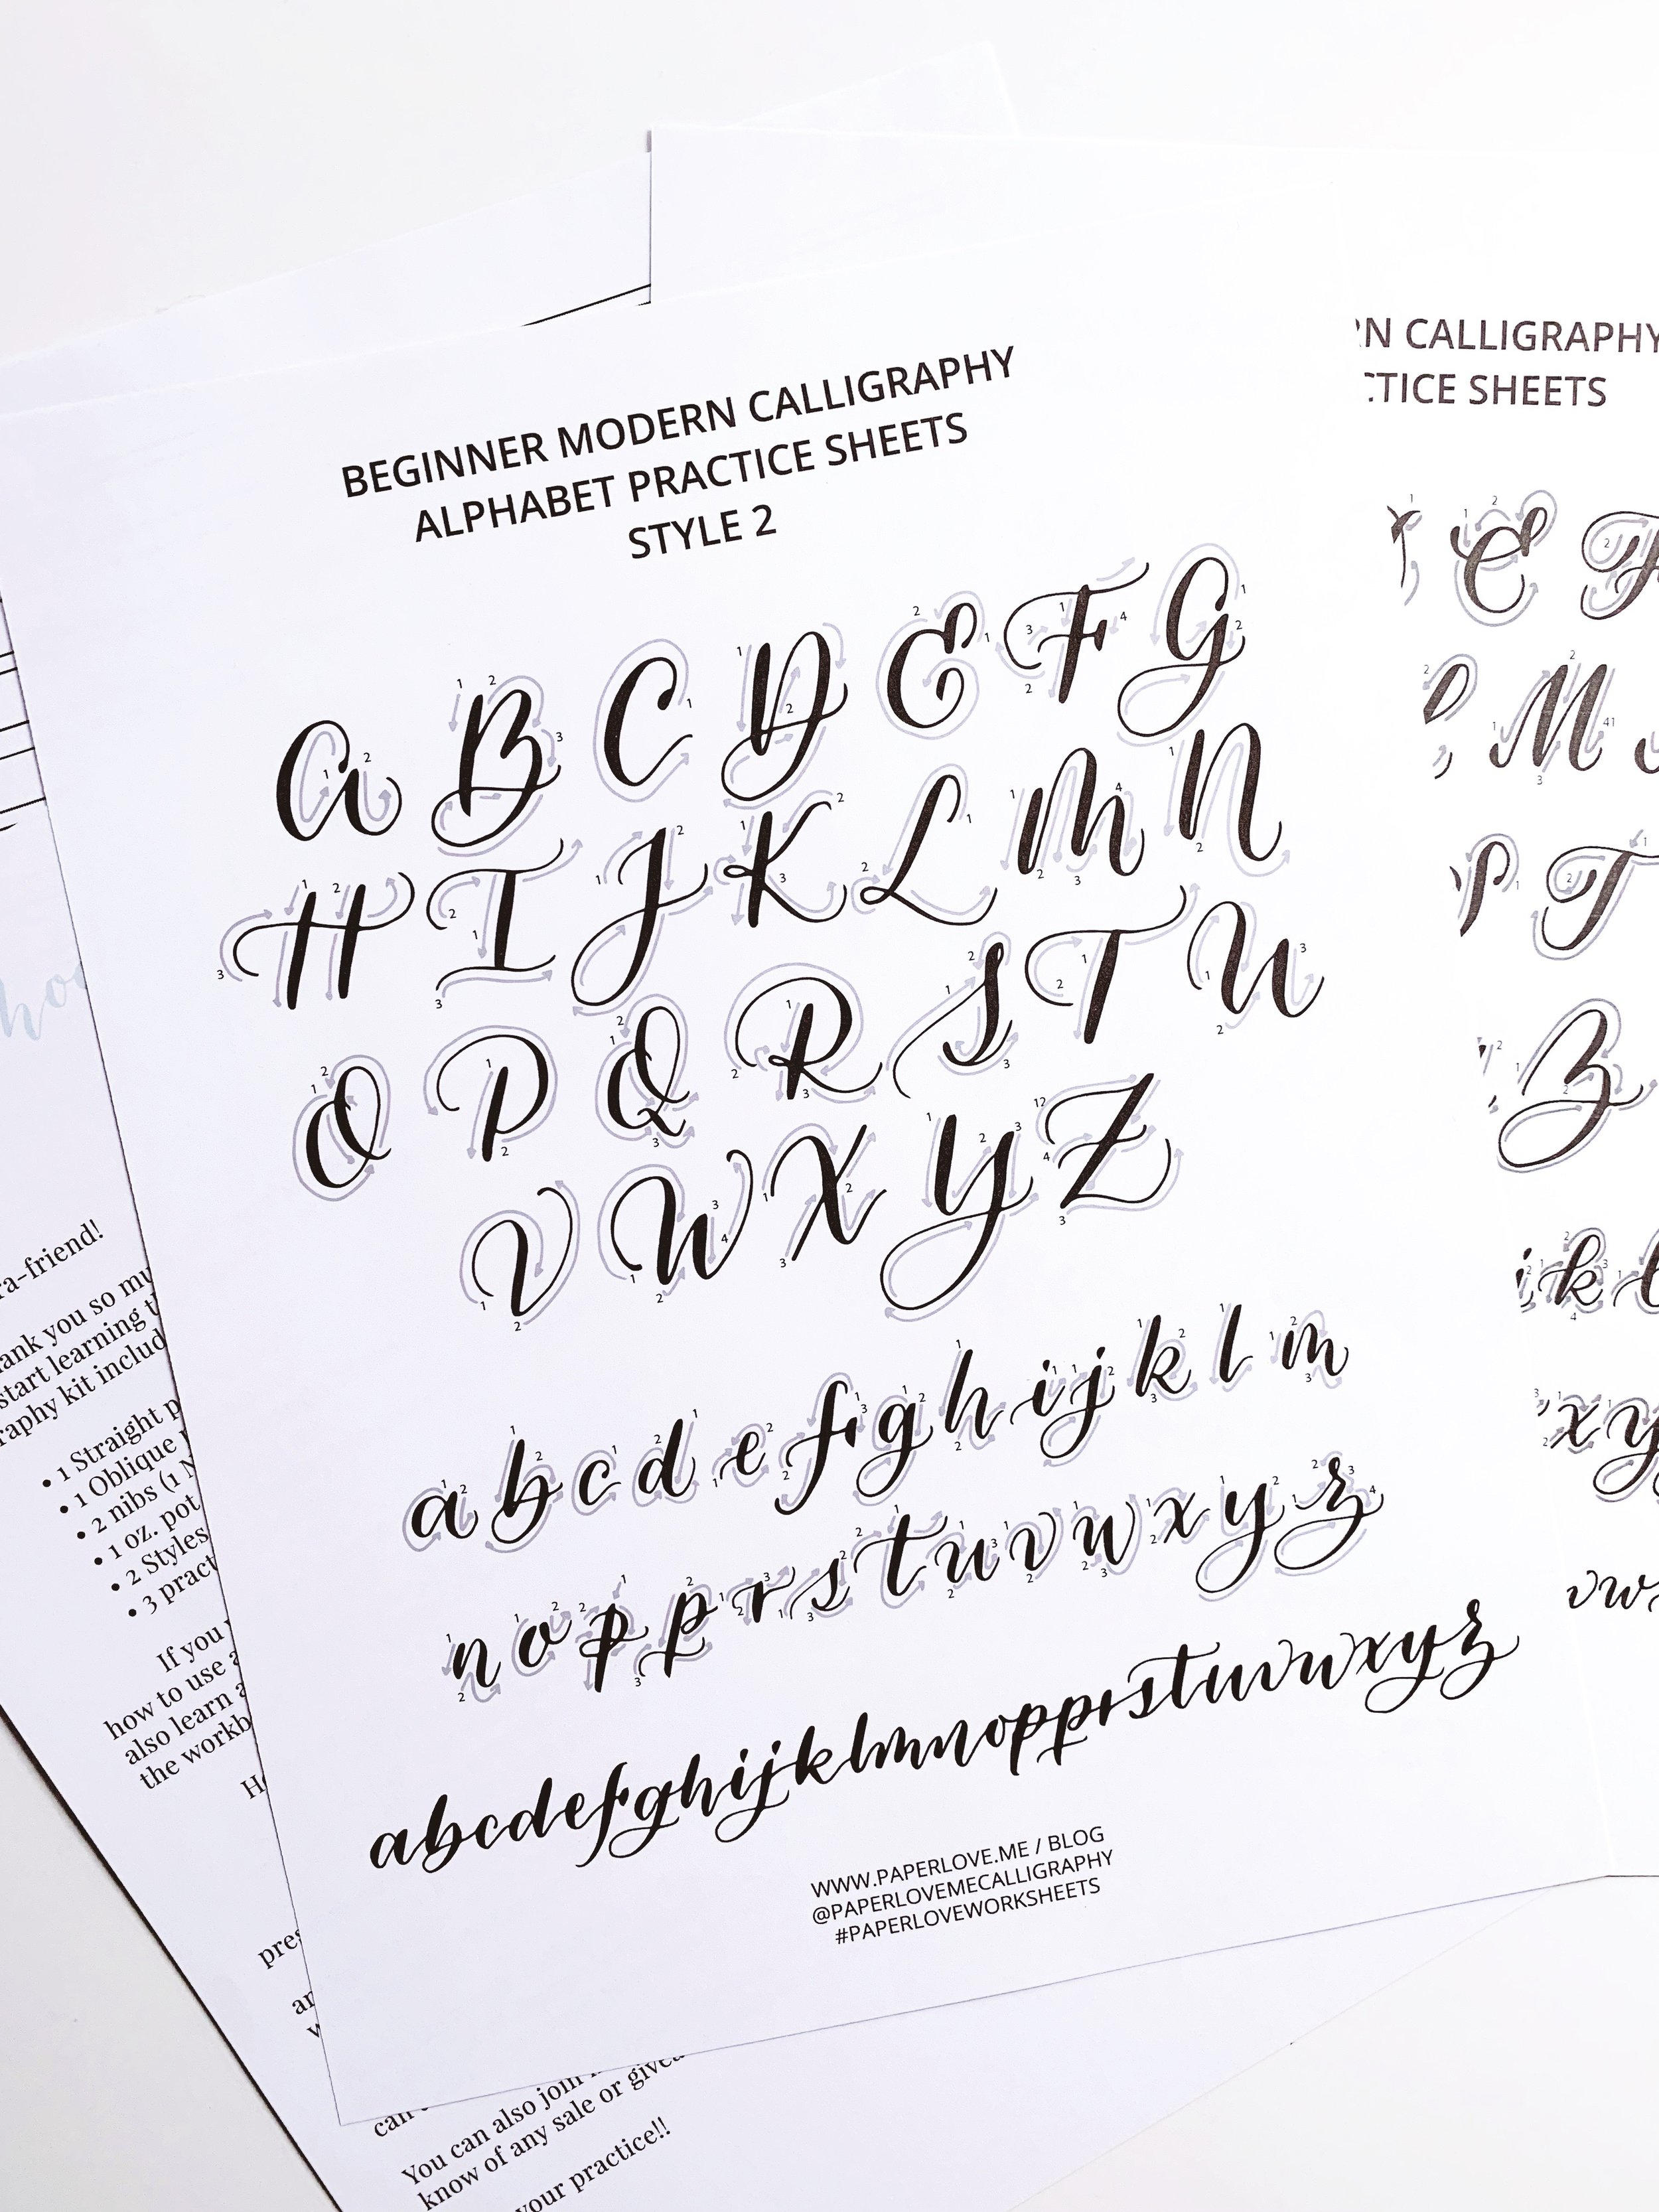 BEGINNER MODERN CALLIGRAPHY
ALPHABET PRACTICE SHEETS
STYLE 2
A B C D E F G
H I J K L M N
O P Q R S T U
V W X Y Z
a b c d e f g h i j k l m
n o p p r s t u v w x y z
abcdefghijklmnopprstuvwxyz
WWW.PAPERLOVE.ME / BLOG
@PAPERLOVEMECALLIGRAPHY
#PAPERLOVEWORKSHEETS
CALLIGRAPHY
SHEETS
E F
M
P T
Z
k
x y
vw
ra-friend!
ank you so mu
start learning t
raphy kit includ
• 1 Straight p
• 1 Oblique
• 2 nibs (1 N
• 1 oz. pot
• 2 Styles
• 3 pract
If you
how to use a
also learn a
the workb
H
pres
ar
w
can
You can also join
know of any sale or givea
your practice!!